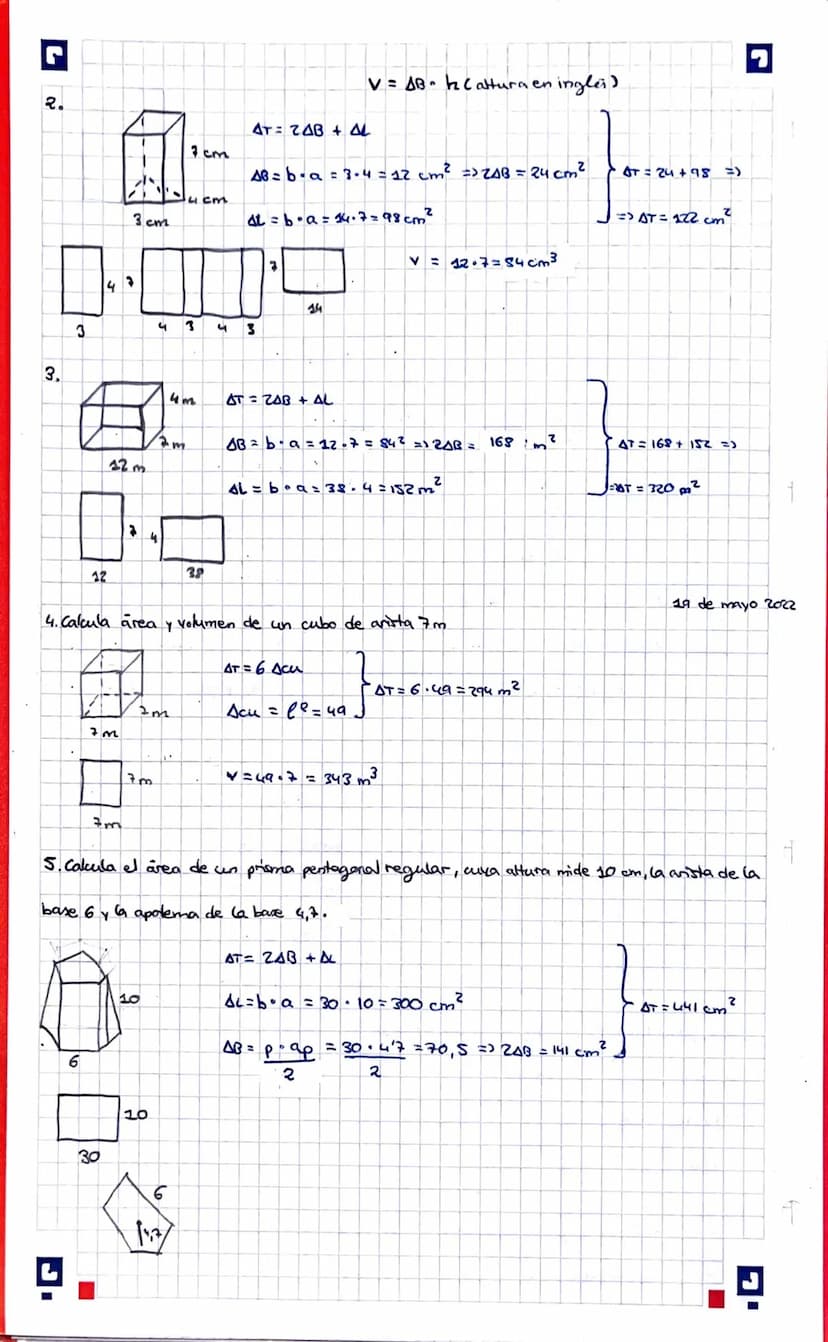 V = AB · h (altura en inglés)
2.
7 cm
4 cm
3 cm
AT = 2AB + AL
AB = b · a = 3 · 4 = 12 cm² => 2AB = 24 cm²
AL = b · a = 14 · 7 = 98 cm²
AT = 24 + 98 =>
=> AT = 122 cm²
V = 12 · 7 = 84 cm³
4
3
7
4 3 4 3
7
14
3.
4 m
7 m
12 m
AT = 2AB + AL
AB = b · a = 12 · 7 = 84² => 2AB = 168 m²
AL = b · a = 38 · 4 = 152 m²
AT = 168 + 152 =>
=> AT = 320 m²
7
12
4
38
19 de mayo 2022
4. Calcula área y volumen de un cubo de arista 7 m
7 m
7 m
AT = 6 Acu
Acu = l² = 49
AT = 6 · 49 = 294 m²
7 m
7 m
V = 49 · 7 = 343 m³
5. Calcula el área de un prisma pentagonal regular, cuya altura mide 10 cm, la arista de la
base 6 y la apotema de la base 4,7.
10
6
AT = 2AB + AL
AL = b · a = 30 · 10 = 300 cm²
AB = p · ap / 2 = 30 · 4'7 / 2 = 70,5 => 2AB = 141 cm²
AT = 441 cm²
10
30
6
4,7